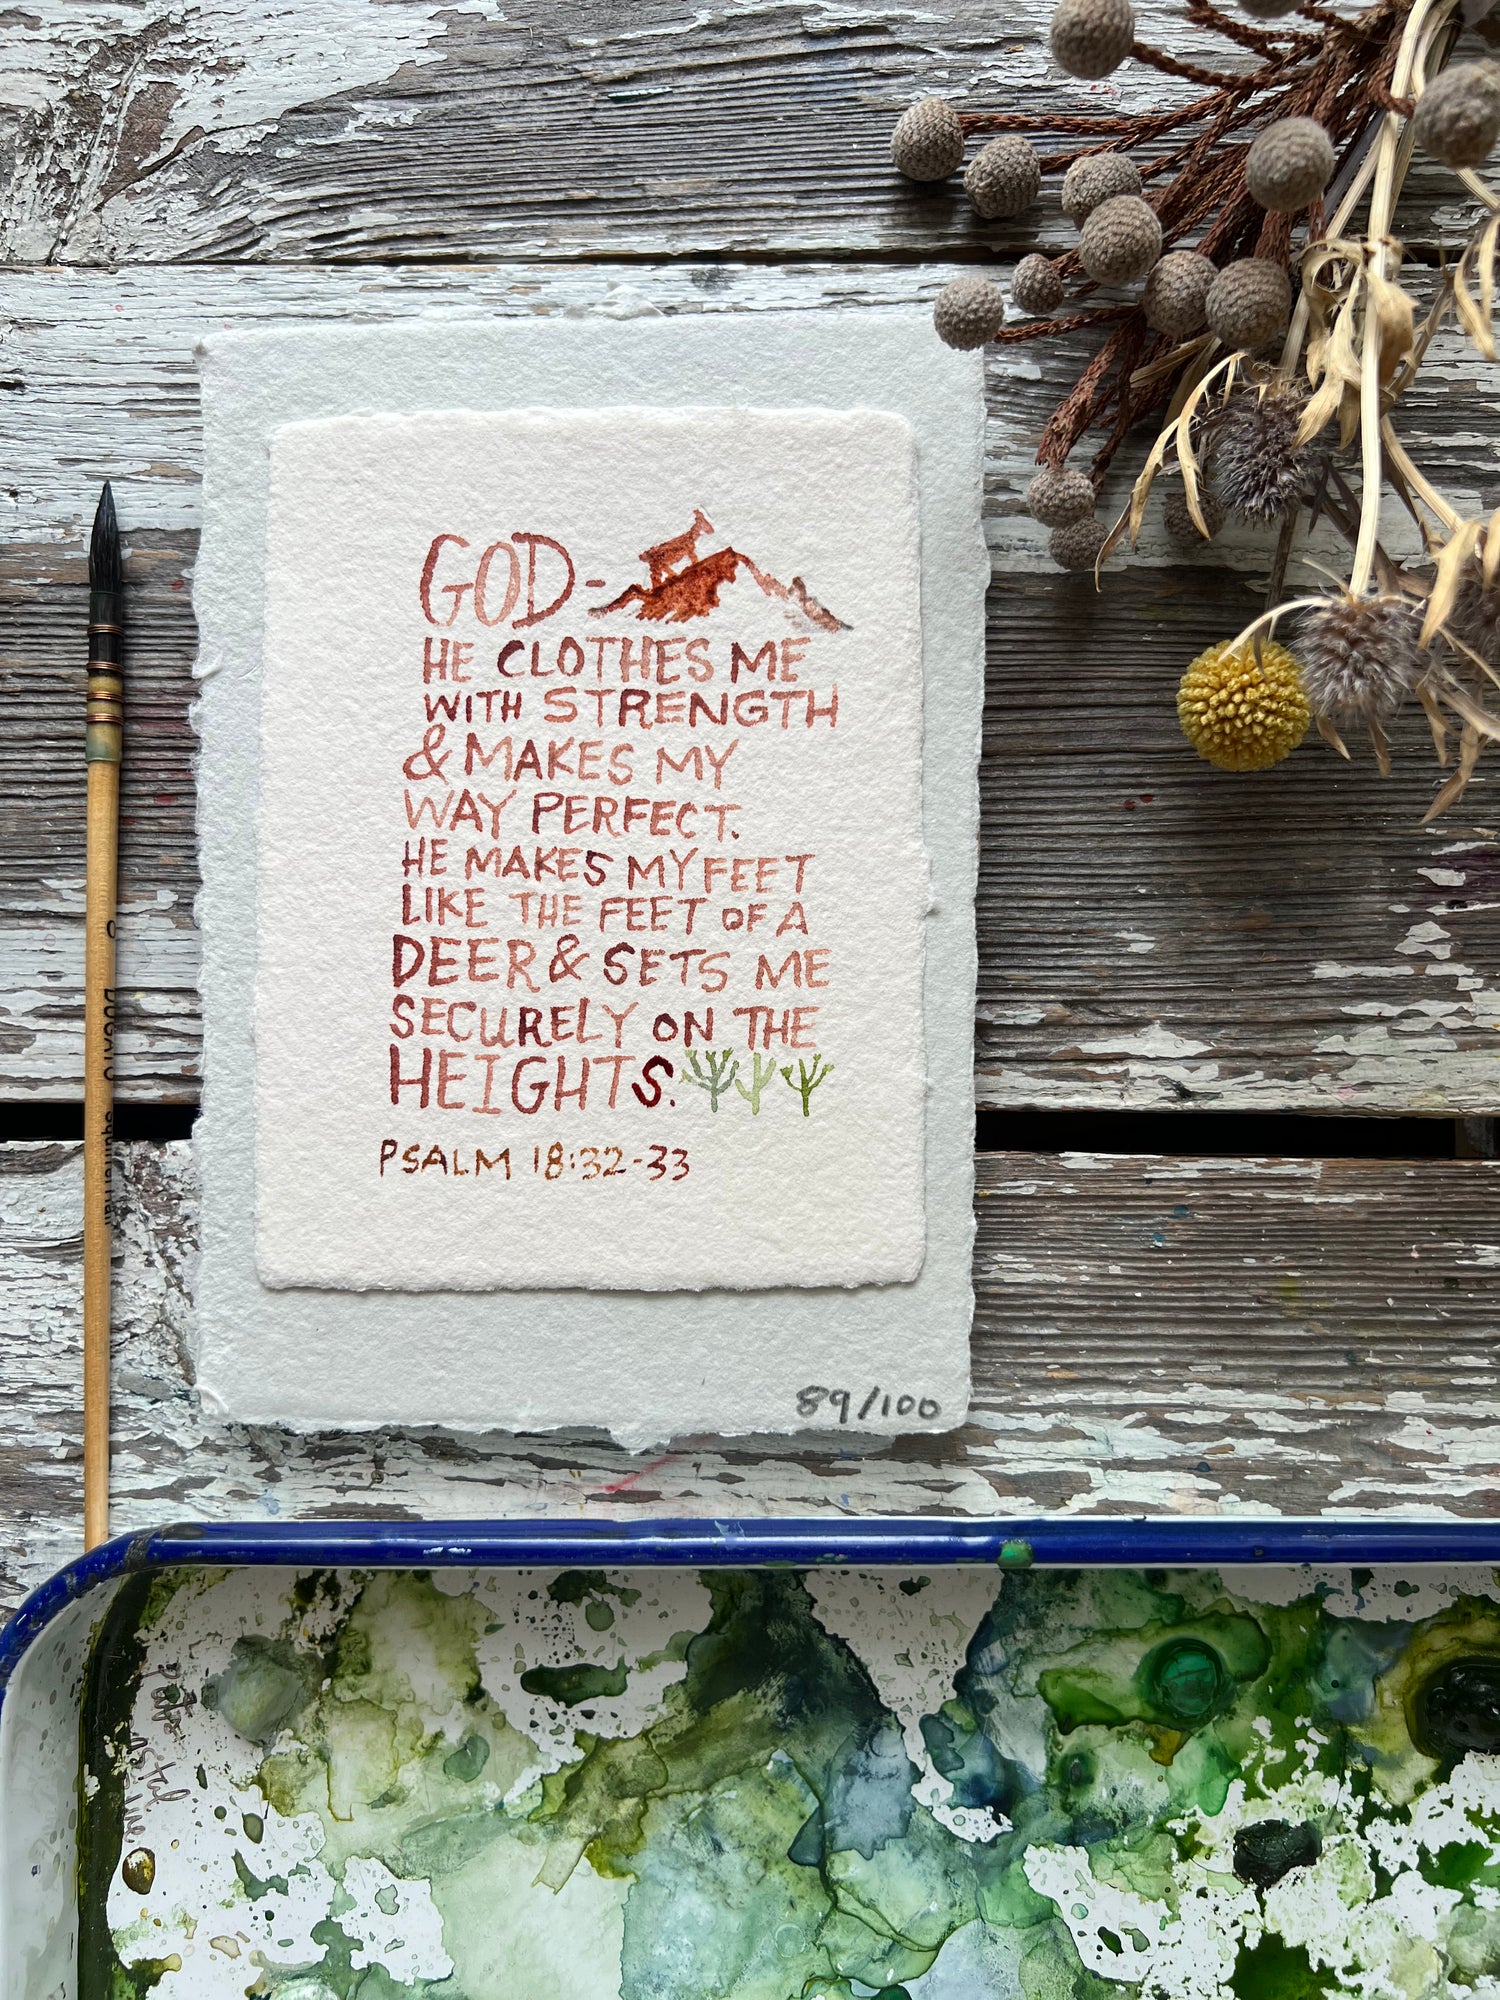 GOD-
HE CLOTHES ME
WITH STRENGTH
& MAKES MY
WAY PERFECT.
HE MAKES MY FEET
LIKE THE FEET OF A
DEER & SETS ME
SECURELY ON THE
HEIGHTS.
PSALM 18:32-33
89/100